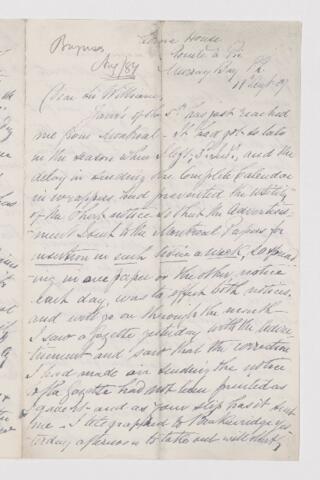 Baynes
Aug/89
House
Pointe à Pic
Murray Bay P.Q.
Dear Sir William,
Yours of the has just reached
me from Montreal. It had got so late
in the season when I left, and the
delay in sending the Complete Calendar
in wrappers had prevented the
of the short notice so that the Advertise-
ment I sent to the Montreal Papers for
insertion in each twice a week, so appear-
ing in one paper or the other, notice
each day, was to effect both notices.
and will go on through the month.
I saw a Gazette yesterday with the Adver
tisement and saw that the correction
I had made in sending the notice
to the Gazette had not been printed as
I gave it and as your slip has it sent
me. I telegraphed to yes-
terday afternoon to take out